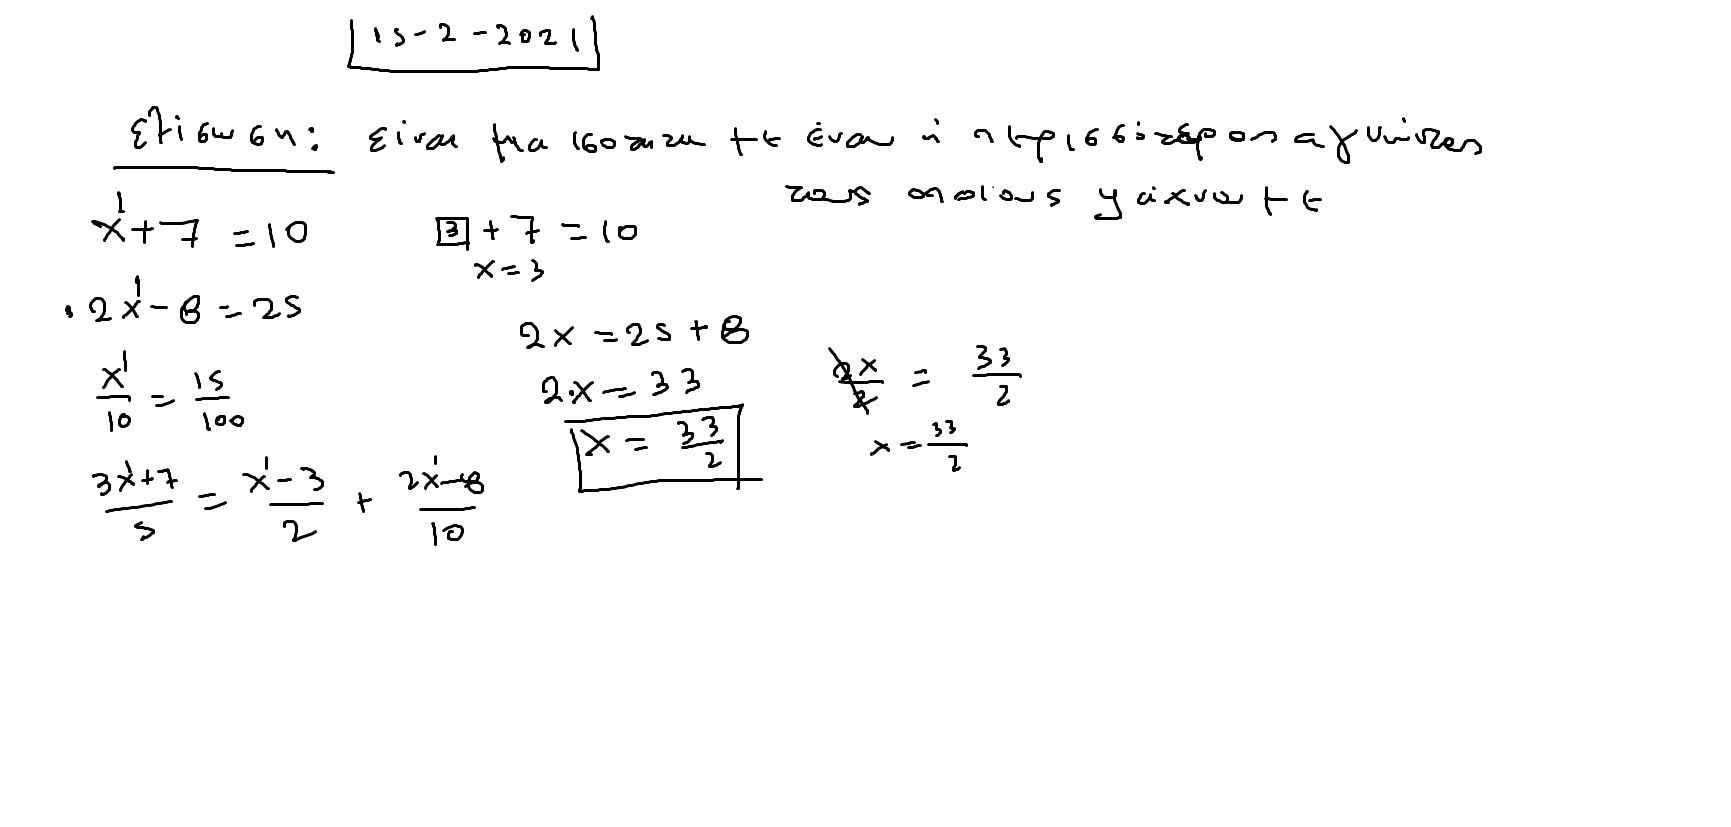 15-2-2021
εξίσωση: είναι μια ισότητα με έναν ή περισσότερους αγνώστους
τους οποίους ψάχνουμε
x¹+7=10
3+7=10
x=3
2x¹-8=25
2x=25+8
2·x=33
x=33/2
2x/2=33/2
x=33/2
x¹/10=15/100
3x¹+7/5=x¹-3/2+2x¹-8/10